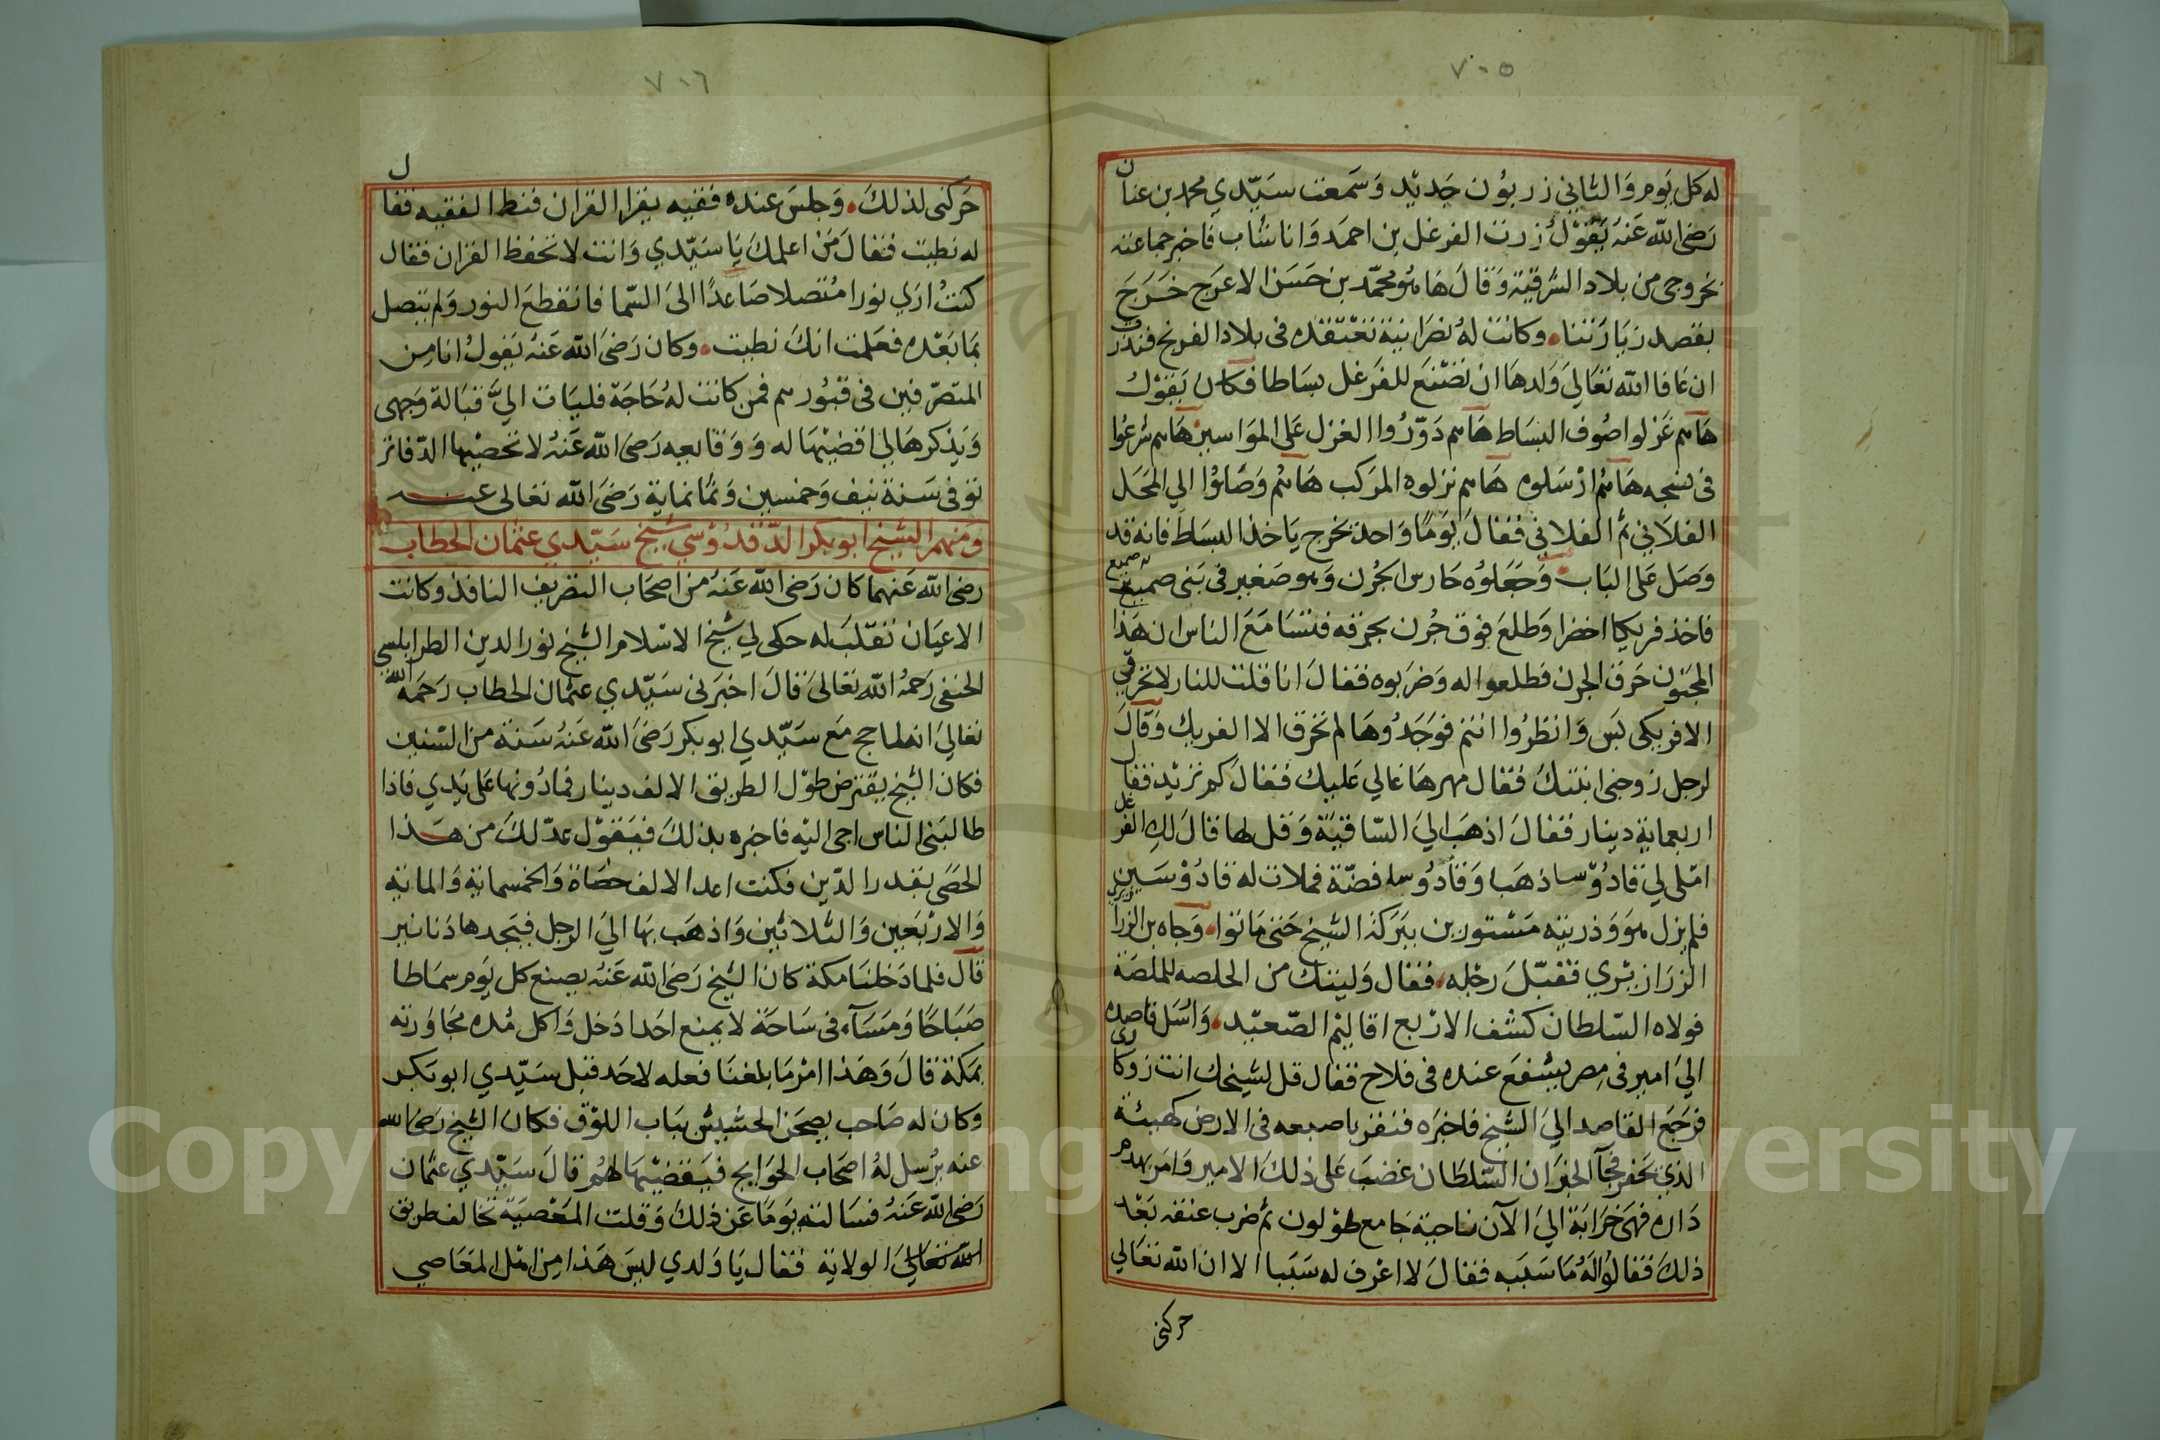 ٧٠٥
له كل يوم والثاني زربون جديد وسمعت سيدي محمد بن عنان
رضي الله عنه يقول زرت الفرغل بن احمد وانا شاب فاخبر جماعته
بخروجي من بلاد الشرقية وقال هاهو محمد بن حسن الاعرج خرج
بقصد زيارتنا وكانت له نصرانية تعتقده في بلاد الفرنج فنذرت
ان عافا الله تعالى ولدها ان تصنع للفرغل بساطا فكان يقول
هاهم غزلوا صوف البساط هاهم دوروا الغزل على المواسير هاهم شرعوا
في نسجه هاهم ارسلوه هاهم نزلوه المركب هاهم وصلوا الى المحل
الفلاني ثم الفلاني فقال يوما واحد يخرج ياخذ البساط فانه قد
وصل على الباب وجعلوه حارس الجرن وهو صغير في بني صميع
فاخذ فريكا اخضرا وطلع فوق جرن يحرقه فتسامع الناس ان هذا
المجنون حرق الجرن فطلعوا له وضربوه فقال انا قلت للنار لا تحرقي
الا فريكى بس وانظروا انتم فوجدوها لم تحرق الا الفريك وقال
لرجل زوجني ابنتك فقال مهرها غالي عليك فقال كم تريد فقال
اربعماية دينار فقال اذهب الى الساقية وقل لها قال لك الفرغل
املى لي قادوسا ذهبا وقادوسا فضة فملات له قادوسين
فلم يزل هو وذريته مستورين ببركة الشيخ حتى ماتوا وجاه بن الزرازيري
الزرازيري فقبل رجله فقال وليتك من الحلصه للملصة
فولاه السلطان كشف الاربع اقاليم الصعيد وارسل قاصده
الى امير في مصر يشفع عنده في فلاح فقال قل لشيخك انت زوكاري
فرجع القاصد الى الشيخ فاخبره فنقر باصبعه في الارض كهيئة
الذي يحفر فجا الخبر ان السلطان غضب على ذلك الامير وامر بهدم
داره فهي خرابة الى الآن ناحية جامع طولون ثم ضرب عنقه بعد
ذلك فقالوا له ما سببه فقال لا اعرف له سببا الا ان الله تعالى
حركني
٧٠٦
حركني لذلك وجلس عنده فقيه يقرا القران فنط الفقيه فقال
له نطيت فقال من اعلمك يا سيدي وانت لا تحفظ القران فقال
كنت ارى نورا متصلا صاعدا الى السما فانقطع النور ولم يتصل
بما بعده فعلمت انك نطيت وكان رضي الله عنه يقول انا من
المتصرفين في قبورهم فمن كانت له حاجة فليات الي قبالة وجهى
ويذكرها لي اقضيها له ووقايعه رضي الله عنه لا تحصيها الدفاتر
توفى سنة نيف وخمسين وثمانماية رضي الله تعالى عنه
ومنهم الشيخ ابو بكر الدقدوسي شيخ سيدي عثمان الحطاب
رضي الله عنهما كان رضي الله عنه من اصحاب التصريف النافذ وكانت
الاعيان تقلب له حكى لي شيخ الاسلام الشيخ نور الدين الطرابلسي
الحنفي رحمه الله تعالى قال اخبرني سيدي عثمان الحطاب رحمه الله
تعالى انه لما حج مع سيدي ابو بكر رضي الله عنه سنة من السنين
فكان الشيخ يقترض طول الطريق الالف دينار فما دونها على يدي فاذا
طالبني الناس اجى اليه فاخبره بذلك فيقول عد لك من هذا
الحصى بقدر الدين فكنت اعد الالف حصاة والخمسماية والماية
والاربعين والثلاثين واذهب بها الى الرجل فيجدها دنانير
قال فلما دخلنا مكة كان الشيخ رضي الله عنه يصنع كل يوم سماطا
صباحا ومساء في ساحة لا يمنع احدا دخل واكل مده مجاورته
بمكة قال وهذا امر ما بلغنا فعله لاحد قبل سيدي ابو بكر
وكان له صاحب يصحن الحشيش بباب اللوق فكان الشيخ رضي الله
عنه يرسل له اصحاب الحوايج فيقضيها لهم قال سيدي عثمان
رضي الله عنه فسالته يوما عن ذلك وقلت المعصية تخالف طريق
الله تعالى الولاية فقال يا ولدي ليس هذا من اهل المعاصي
Copyright © King Saud University